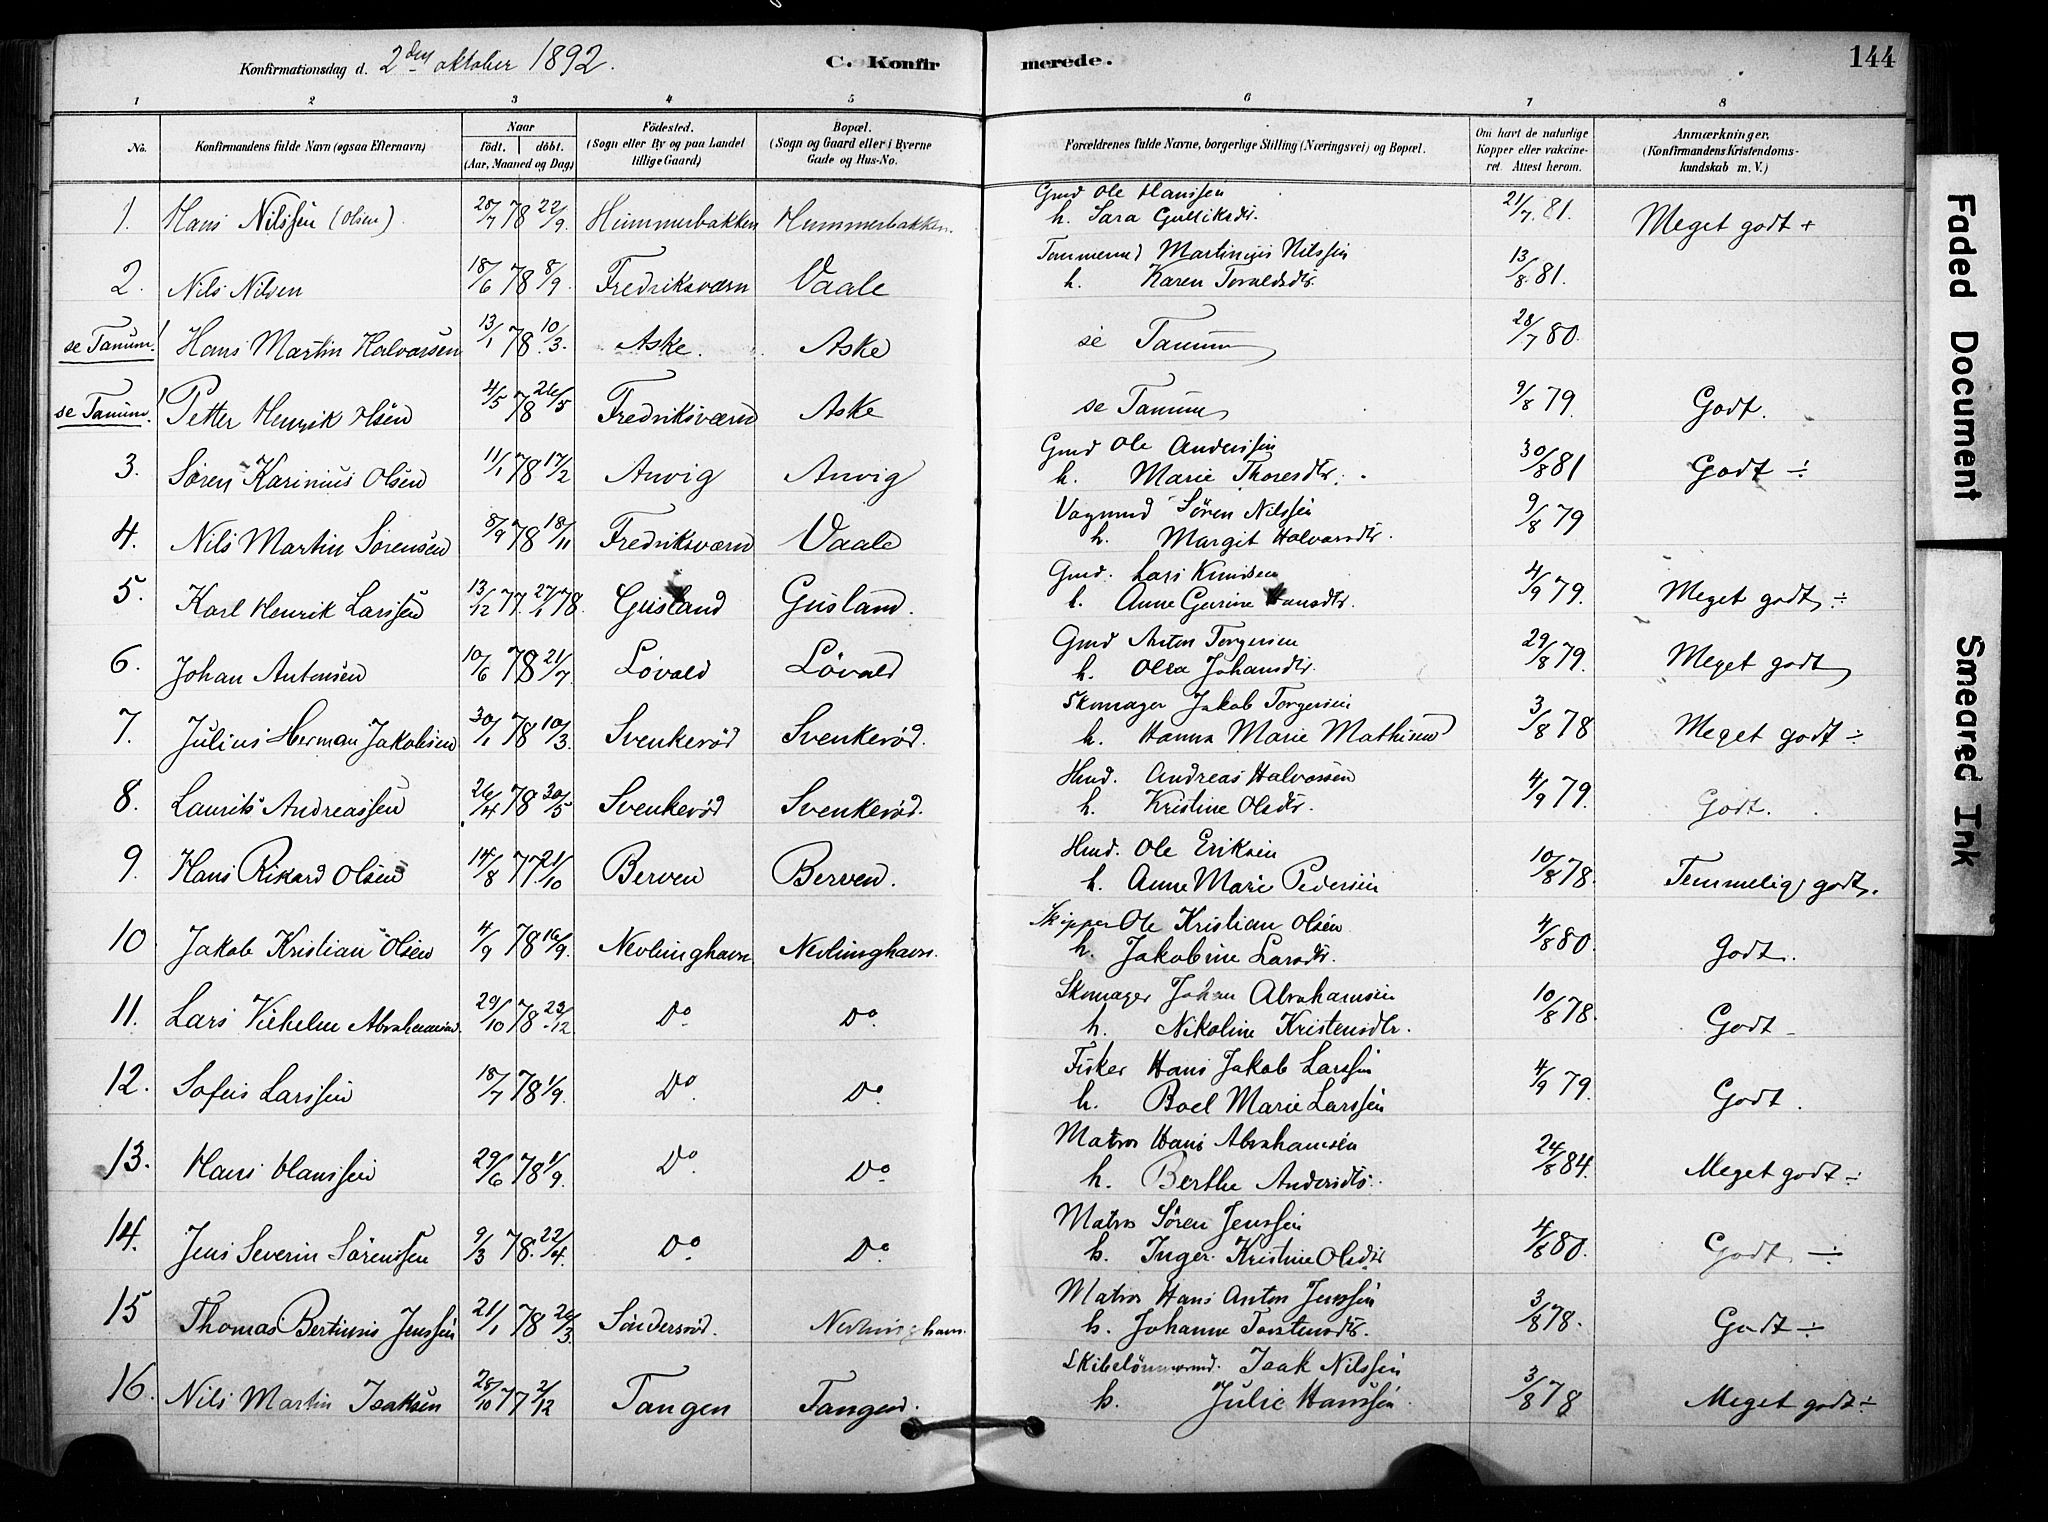 Konfirmationsdag d. 2den oktober 1892.
C. Konfirmerede.
144
1 2 3 4 5 6 7 8
No. Konfirmandens fulde Navn (ogsaa Efternavn) Naar födt, döbt. (Aar, Maaned og Dag) Födested. (Sogn eller By og paa Landet tillige Gaard) Bopæl. (Sogn og Gaard eller i Byerne Gade og Hus-No. Forældrenes fulde Navne, borgerlige Stilling (Næringsvei) og Bopæl. Om havt de naturlige Kopper eller vakcineret. Attest herom. Anmærkninger, (Konfirmandens Kristendomskundskab m. V.)
1. Hans Nilssen (Olsen) 28/7 78 22/9. Hummerbakken Hummerbakken. Gmd Ole Hanssen 21/7. 81. Meget godt +
h. Sara Gulliksdtr.
2. Nils Nilsen 18/6 78 8/9. Fredriksværn Vaale Tømmermd Martinius Nilssen 13/8. 81.
h. Karen Torvaldsdtr.
se Tanum! Hans Martin Halvorsen 13/1 78. 10/3. Aske. Aske se Tanum 28/7 80.
se Tanum! Petter Henrik Olsen 4/5 78 26/5 Fredriksværn Aske se Tanum 9/8 79. Godt.
3. Søren Karinius Olsen 11/1 78 17/2 Anvig Anvig Gmd Ole Anderssen 30/8 81 Godt ÷
h. Marie Thoresdtr.
4. Nils Martin Sørensen 8/9 78 18/11 Fredriksværn Vaale Vognmd Søren Nilssen 9/8 79
h. Margit Halvorsdtr.
5. Karl Henrik Larssen 13/12 77. 27/1 78. Gusland Gusland. Gmd. Lars Knudsen 4/9 79. Meget godt ÷
h. Anne Gurine Hansdtr.
6. Johan Antonsen 10/6 78 21/7. Løvald Løvald Gmd Anton Torgersen 29/8 79. Meget godt
h. Olea Johansdtr.
7. Julius Herman Jakobsen 30/1 78 10/3. Svenkerød Svenkerød. Skomager Jakob Torgersen 3/8 78 Meget godt ÷
h. Hanna Marie Mathisen
8. Laurits Andreassen 26/4 78 30/5 Svenkerød Svenkerød. Hmd. Andreas Halvorsen 4/9 79. Godt.
h. Kristine Olsdtr.
9. Hans Rikard Olsen 14/8 77 21/10 Berven Berven. Hmd. Ole Eriksen 10/8 78. Temmelig godt.
h. Anne Marie Pedersen
10 Jakob Kristian Olsen 4/9 78 16/9. Nevlunghavn Nevlunghavn. Skipper Ole Kristian Olsen 4/8 80. Godt.
h. Jakobine Larsdtr.
11. Lars Vilhelm Abrahamsen. 29/10 78. 23/12. Do Do. Skomager Johan Abrahamsen 10/8 78. Godt
h. Nikoline Kristensdtr.
12. Sofus Larssen 18/7 78 1/9. Do Do. Fisker Hans Jakob Larssen 4/9 79. Godt.
h. Boel Marie Larssen
13. Hans Hanssen 29/6 78 1/9. Do Do. Matros Hans Abrahamsen 24/8 84. Meget godt ÷
h. Berthe Andersdtr.
14. Jens Severin Sørenssen 9/3 78. 22/4. Do Do Matros Søren Jenssen 4/8 80. Godt ÷
h. Inger Kristine Olsdtr
15 Thomas Bertinius Jenssen 21/1 78 26/3 Söndersrød. Nevlunghavn. Matros Hans Anton Jenssen 3/8 78. Godt ÷
h. Johanne Torstensdtr.
16. Nils Martin Isaksen 28/10 77 2/12 Tangen Tangen. Skibstömmermd. Isak Nilssen 3/8 78 Meget godt ÷
h. Julie Hanssen
Faded Document
Smeared Ink